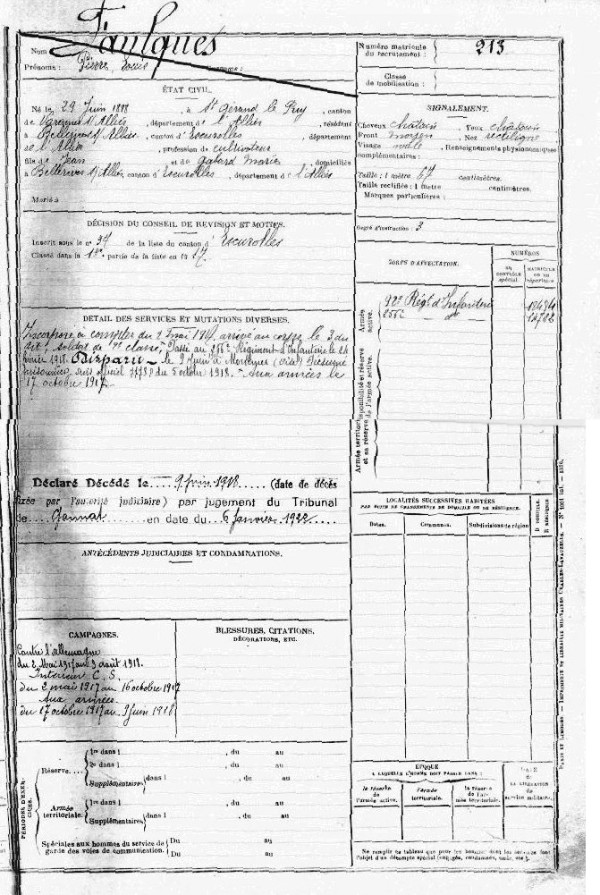 Nom
Faulques
Prénoms : Pierre Louis
Surnoms :
Numéro matricule
du recrutement :
213
Classe
de mobilisation :
ÉTAT CIVIL.
Né le 29 Juin 1898, à St Gérand le Puy, canton
de Varennes s/ Allier, département de l'Allier, résidant
à Bellerives/Allier, canton d'Escurolles, département
de l'Allier, profession de cultivateur
fils de Jean et de Gabard Marie, domiciliés
à Bellerives s/Allier, canton d'Escurolles, département de l'Allier
Marié à
SIGNALEMENT.
Cheveux châtain Yeux châtain
Front moyen Nez rectiligne
Visage ovale Renseignements physionomiques
complémentaires :
Taille : 1 mètre 67 centimètres.
Taille rectifiée : 1 mètre centimètres.
Marques particulières :
Degré d'instruction : 3
DÉCISION DU CONSEIL DE REVISION ET MOTIFS.
Inscrit sous le n° 37 de la liste du canton d'Escurolles
Classé dans la 1re partie de la liste en 1917.
CORPS D'AFFECTATION.
NUMÉROS
AU CONTRÔLE spécial.
MATRICULE au répertoire.
Armée active.
92e Régt d'Infanterie
256e do
Disponibilité et réserve de l'armée active.
Armée territoriale et sa réserve
DÉTAIL DES SERVICES ET MUTATIONS DIVERSES.
Incorporé à compter du 2 mai 1917, arrivé au corps le 3 du
dit, soldat de 2e classe. Passé au 256e Régiment d'Infanterie le 24
février 1918. Disparu le 9 Juin à (Oise) Présumé
prisonnier, avis officiel du 5 octobre 1918. Aux armées le
17 octobre 1917.
Déclaré Décédé le 9 Juin 1918 (date de décès
fixée par l'autorité judiciaire) par jugement du Tribunal
de Gannat en date du 6 Janvier 1922
ANTÉCÉDENTS JUDICIAIRES ET CONDAMNATIONS.
LOCALITÉS SUCCESSIVES HABITÉES
PAR SUITE DE CHANGEMENTS DE DOMICILE OU DE RÉSIDENCE.
Dates.
Communes.
Subdivisions de région
D domicile.
R résidence
CAMPAGNES.
Contre l'Allemagne
du 2 Mai 1917 au 9 août 1918.
Intérieur C. S.
du 2 mai 1917 au 16 octobre 1917
Aux armées
du 17 octobre 1917 au 9 Juin 1918
BLESSURES, CITATIONS,
DÉCORATIONS, ETC.
PÉRIODES D'EXERCICES.
Réserve
1re dans l , du au
2e dans l , du au
Supplémentaire dans l , du au
Armée territoriale.
1re dans l , du au
Supplémentaire dans l , du au
Spéciales aux hommes du service de
garde des voies de communication.
Du au
Du au
ÉPOQUE
À LAQUELLE L'HOMME DOIT PASSER DANS :
la réserve de l'armée active.
l'armée territoriale.
la réserve de l'armée territoriale.
DATE DE LA LIBÉRATION du service militaire.